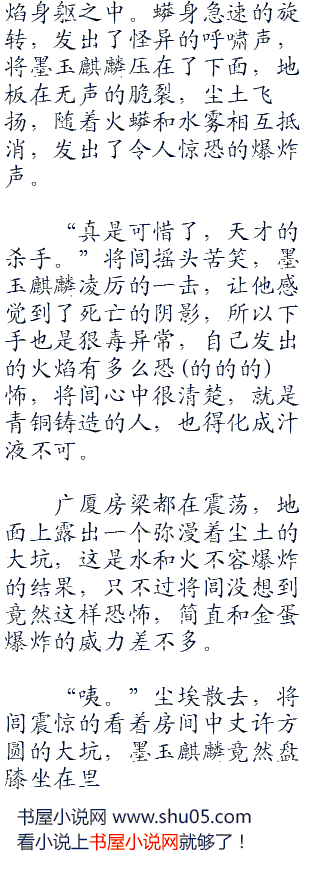 焰身躯之中。蟒身急速的旋
转，发出了怪异的呼啸声，
将墨玉麒麟压在了下面，地
板在无声的脆裂，尘土飞
扬，随着火蟒和水雾相互抵
消，发出了令人惊恐的爆炸
声。
“真是可惜了，天才的
杀手。”将闾摇头苦笑，墨
玉麒麟凌厉的一击，让他感
觉到了死亡的阴影，所以下
手也是狠毒异常，自己发出
的火焰有多么恐(的的的)
怖，将闾心中很清楚，就是
青铜铸造的人，也得化成汁
液不可。
广厦房梁都在震荡，地
面上露出一个弥漫着尘土的
大坑，这是水和火不容爆炸
的结果，只不过将闾没想到
竟然这样恐怖，简直和金蛋
爆炸的威力差不多。
“咦。”尘埃散去，将
闾震惊的看着房间中丈许方
圆的大坑，墨玉麒麟竟然盘
膝坐在里
书屋小说网 www.shu05.com
看小说上书屋小说网就够了！